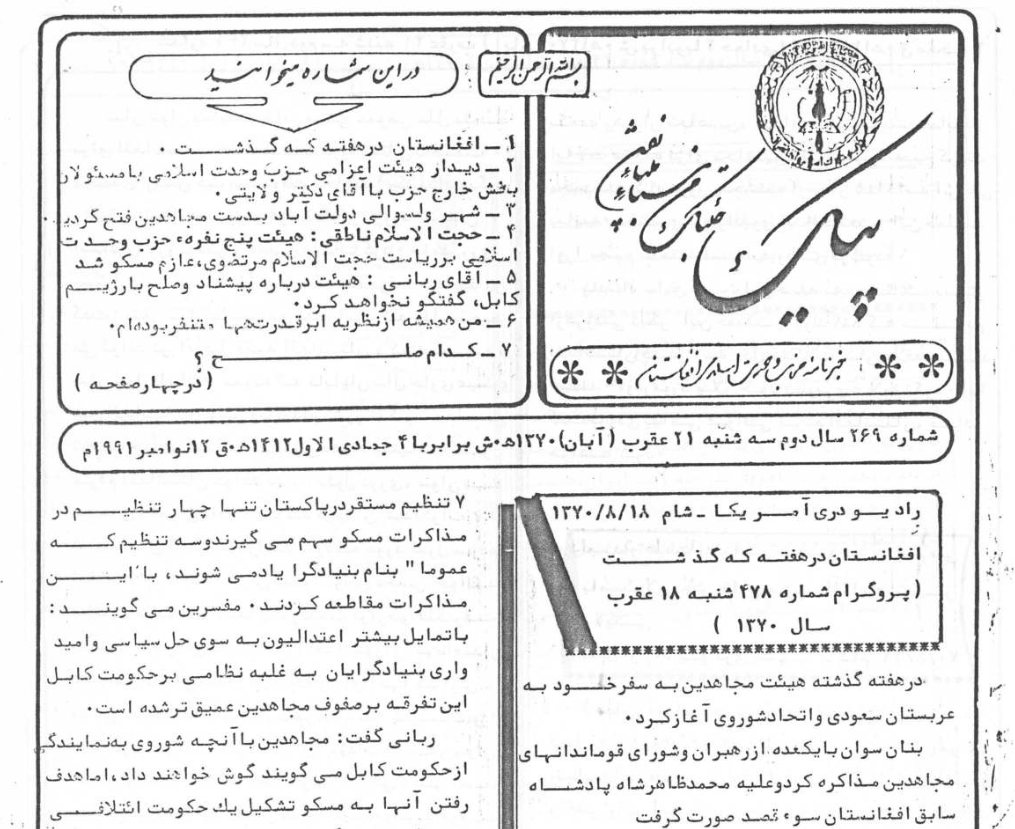 بسم الله الرحمن الرحیم
در این شماره میخوانید
۱ـ افغانستان درهفته که گذشت ۰
۲ـ دیدار هیئت اعزامی حزب وحدت اسلامی بامسئولان
بخش خارج حزب باآقای دکتر ولایتی۰
۳ـ شهر ولسوالی دولت آباد بدست مجاهدین فتح گردید۰
۴ـ حجت الاسلام ناطقی: هیئت پنج نفره حزب وحدت
اسلامی برریاست حجت الاسلام مرتضوی،عازم مسکو شد
۵ـ آقای ربانی : هیئت درباره پیشناد وصلح بارژیم
کابل، گفتگو نخواهد کرد۰
۶ـ من همیشه ازنظریه ابرقدرتهها متنفربوده‌ام۰
۷ـ کدام صلح ؟
(درچهارصفحه )
شماره ۲۶۹ سال دوم سه شنبه ۲۱ عقرب ( آبان)۱۳۷۰ه۰ش برابربا ۴ جمادی الاول۱۴۱۲ه۰ق ۱۲نوامبر۱۹۹۱م
رادیو دری آمریکا ـ شام ۱۳۷۰/۸/۱۸
افغانستان درهفته که گذشت
( پروگرام شماره ۴۷۸ شنبه ۱۸ عقرب
سال ۱۳۷۰ )
درهفته گذشته هیئت مجاهدین به سفر خود به
عربستان سعودی واتحادشوروی آغازکرد۰
بنان سوان بایکعده ازرهبران وشورای قوماندانهای
مجاهدین مذاکره کردوعلیه محمدظاهرشاه پادشاه
سابق افغانستان سوء قصد صورت گرفت
۷ تنظیم مستقردرپاکستان تنها چهار تنظیم در
مذاکرات مسکو سهم می گیرندوسه تنظیم که
عموما " بنام بنیادگرا یادمی شوند، با این
مذاکرات مقاطعه کردند۰ مفسرین می گویند :
باتمایل بیشتر اعتدالیون به سوی حل سیاسی وامید
واری بنیادگرایان به غلبه نظامی برحکومت کابل
این تفرقه برصفوف مجاهدین عمیق ترشده است۰
ربانی گفت: مجاهدین باآنچه شوروی به‌نمایندگی
ازحکومت کابل می گویند گوش خواهند داد،اماهدف
رفتن آنها به مسکو تشکیل یك حکومت ائتلافی